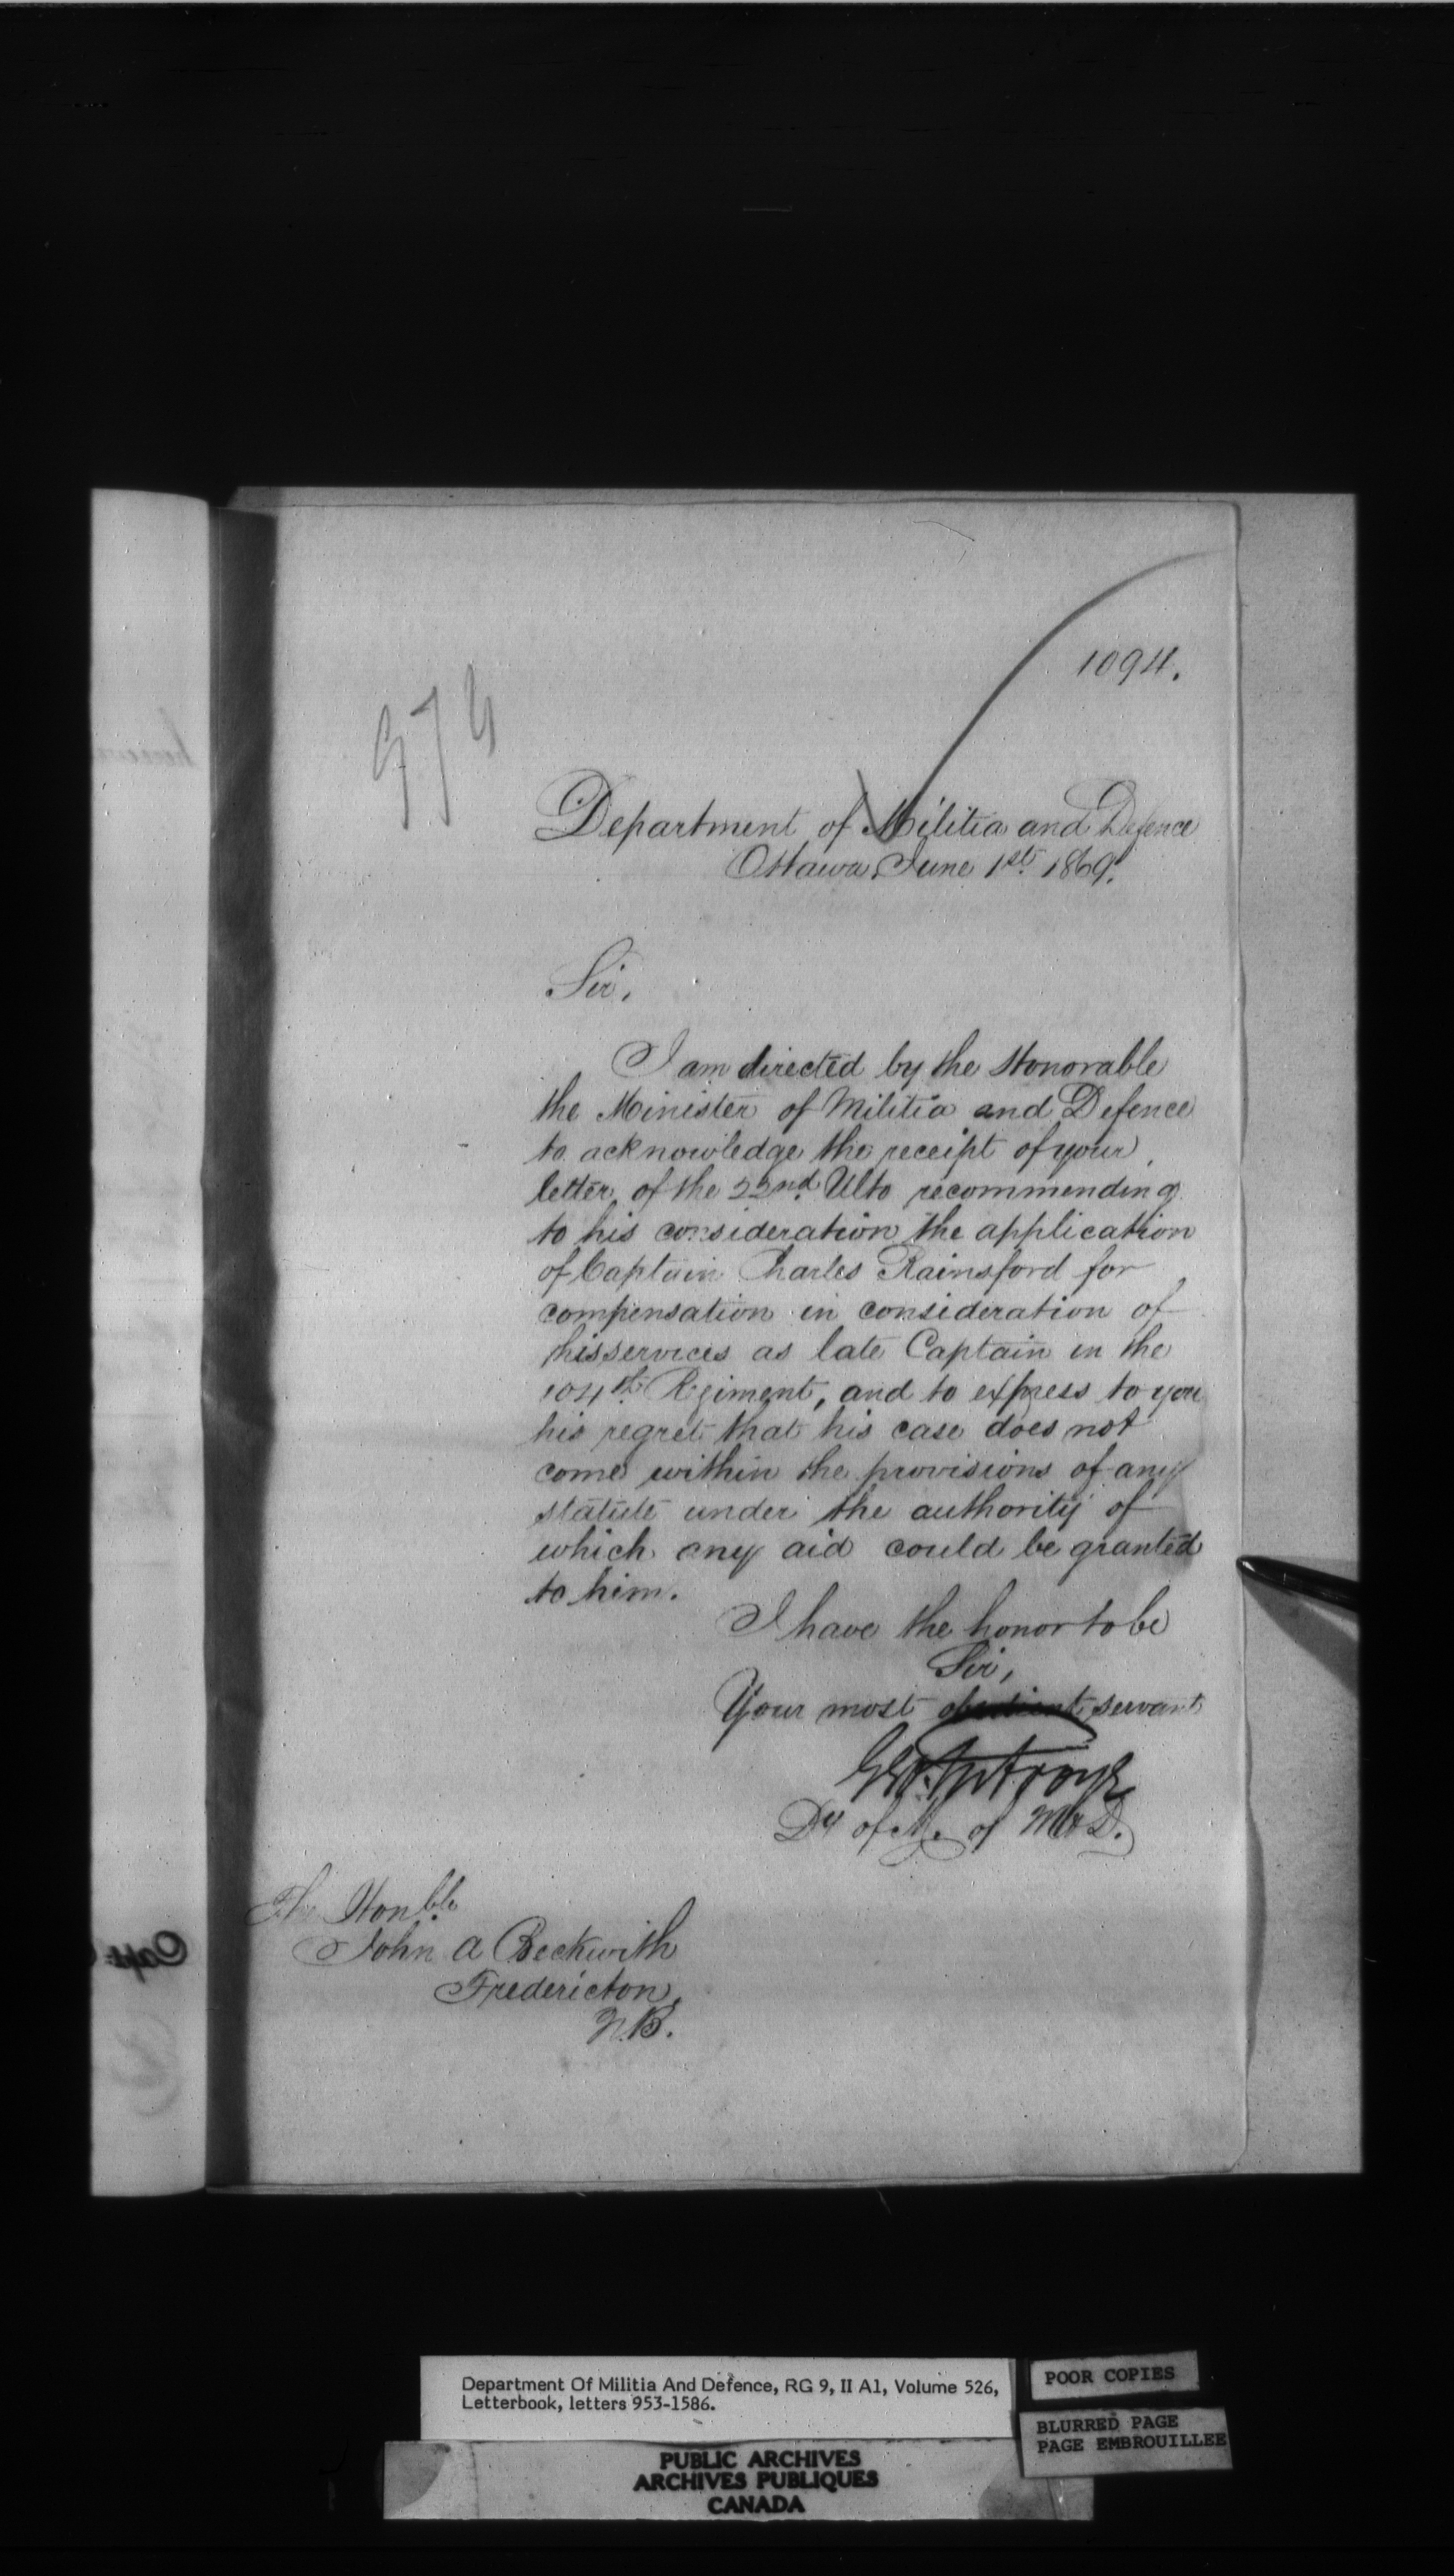 1094.
974
Department of Militia and Defence
Ottawa June 1st 1869.
Sir,
I am directed by the Honorable
the Minister of Militia and Defence
to acknowledge the receipt of your
letter of the 22nd. Ulto recommending
to his consideration the application
of Captain Charles Rainsford for
compensation in consideration of
his services as late Captain in the
104th. Regiment, and to express to you
his regret that his case does not
come within the provisions of any
statute under the authority of
which any aid could be granted
to him.
I have the honor to be
Sir,
Your most obedient servant
Dy of M. of M & D.
The Honble.
John A Beckwith
Fredericton,
N.B.
Capt
Department Of Militia And Defence, RG 9, II A1, Volume 526,
Letterbook, letters 953-1586.
POOR COPIES
BLURRED PAGE
PAGE EMBROUILLEE
PUBLIC ARCHIVES
ARCHIVES PUBLIQUES
CANADA